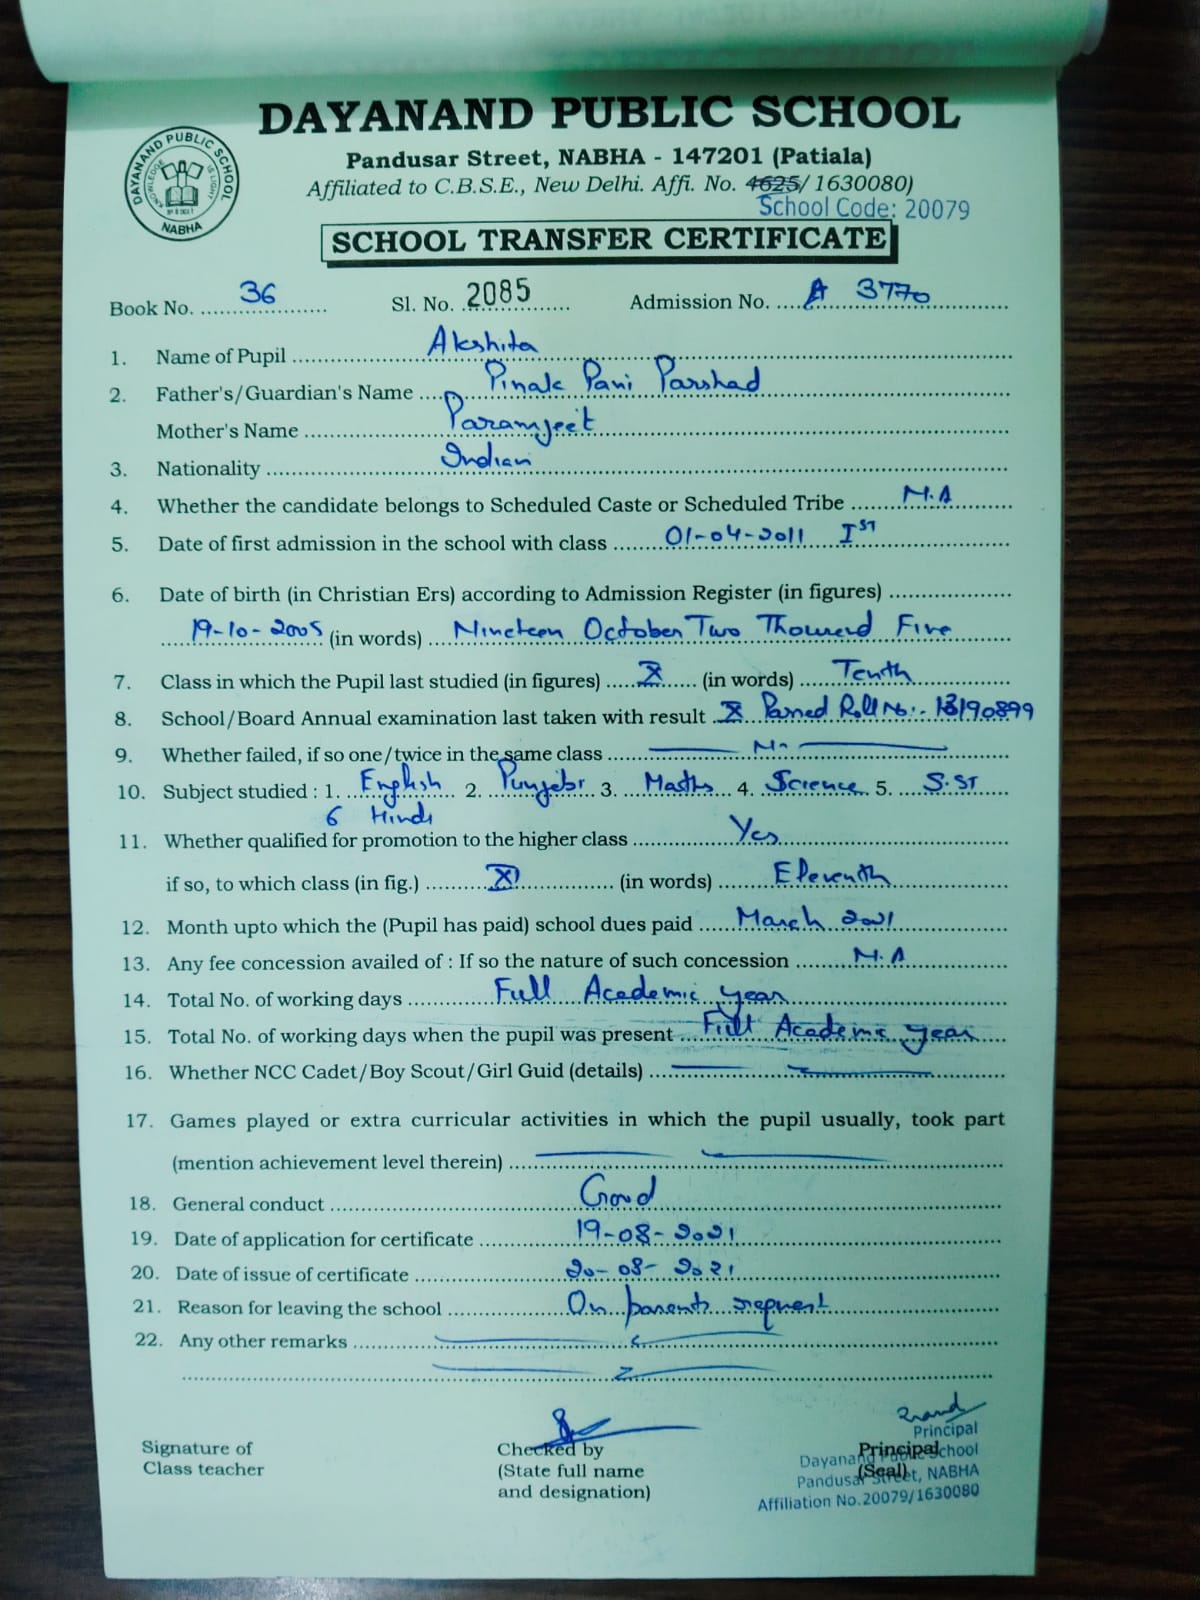 DAYANAND PUBLIC SCHOOL
DAYANAND PUBLIC SCHOOL
KNOWLEDGE IS LIGHT
NABHA
Pandusar Street, NABHA - 147201 (Patiala)
Affiliated to C.B.S.E., New Delhi. Affi. No. 4625/ 1630080)
School Code: 20079
SCHOOL TRANSFER CERTIFICATE
Book No. 36 Sl. No. 2085 Admission No. A 3770
1. Name of Pupil Akshita
2. Father's/Guardian's Name Pinak Pani Parshad
Mother's Name Paramjeet
3. Nationality Indian
4. Whether the candidate belongs to Scheduled Caste or Scheduled Tribe N.A
5. Date of first admission in the school with class 01-04-2011 IST
6. Date of birth (in Christian Ers) according to Admission Register (in figures)
19-10-2005 (in words) Nineteen October Two Thousand Five
7. Class in which the Pupil last studied (in figures) X (in words) Tenth
8. School/Board Annual examination last taken with result X Passed Roll No:- 13190899
9. Whether failed, if so one/twice in the same class No
10. Subject studied : 1. English 2. Punjabi 3. Maths 4. Science 5. S.ST
6 Hindi
11. Whether qualified for promotion to the higher class Yes
if so, to which class (in fig.) XI (in words) Eleventh
12. Month upto which the (Pupil has paid) school dues paid March 2021
13. Any fee concession availed of : If so the nature of such concession N.A
14. Total No. of working days Full Academic year
15. Total No. of working days when the pupil was present Full Academic year
16. Whether NCC Cadet/Boy Scout/Girl Guid (details)
17. Games played or extra curricular activities in which the pupil usually, took part
(mention achievement level therein)
18. General conduct Good
19. Date of application for certificate 19-08-2021
20. Date of issue of certificate 20-08-2021
21. Reason for leaving the school On parents request
22. Any other remarks
Signature of
Class teacher
Checked by
(State full name
and designation)
Principal
(Seal)
Principal
Dayanand Public School
Pandusar Street, NABHA
Affiliation No.20079/1630080